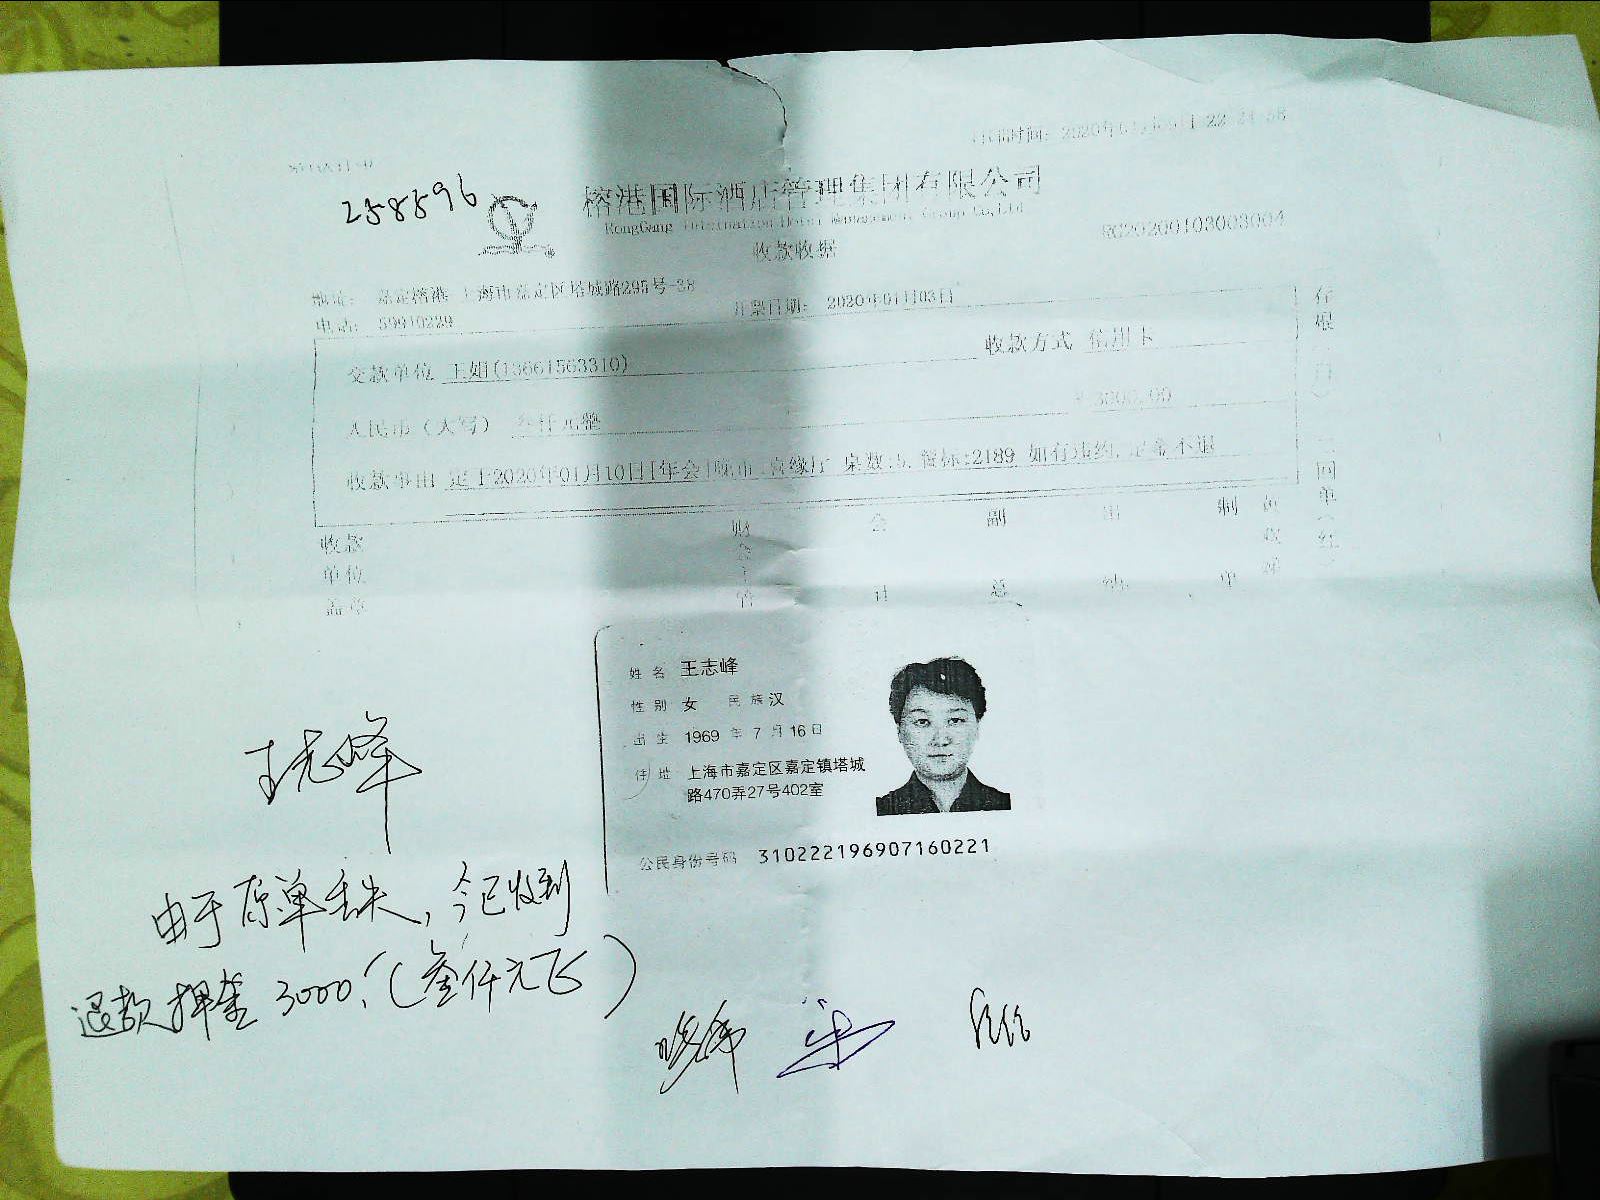 258596
榕港国际酒店管理集团有限公司
RongGang International Hotel Management Group Co.,Ltd
收款收据
RG20200103003004
地址： 嘉定榕港 上海市嘉定区塔城路295号-38
电话： 59910229
开票日期： 2020年01月03日
交款单位 王姐(13661563310)
收款方式 信用卡
人民币（大写） 叁仟元整
￥3000.00
收款事由 定于2020年01月10日[年会]晚市 喜缘厅 桌数:5, 餐标:2189 如有违约,定金不退
收款单位盖章
财务主管
会计
副总
出纳
制单
存根
二回单（红）
姓名 王志峰
性别 女 民族 汉
出生 1969 年 7 月 16 日
住址 上海市嘉定区嘉定镇塔城
路470弄27号402室
公民身份号码 310222196907160221
王志峰
由于原单丢失，今已收到
退款押金 3000.（叁仟元正）